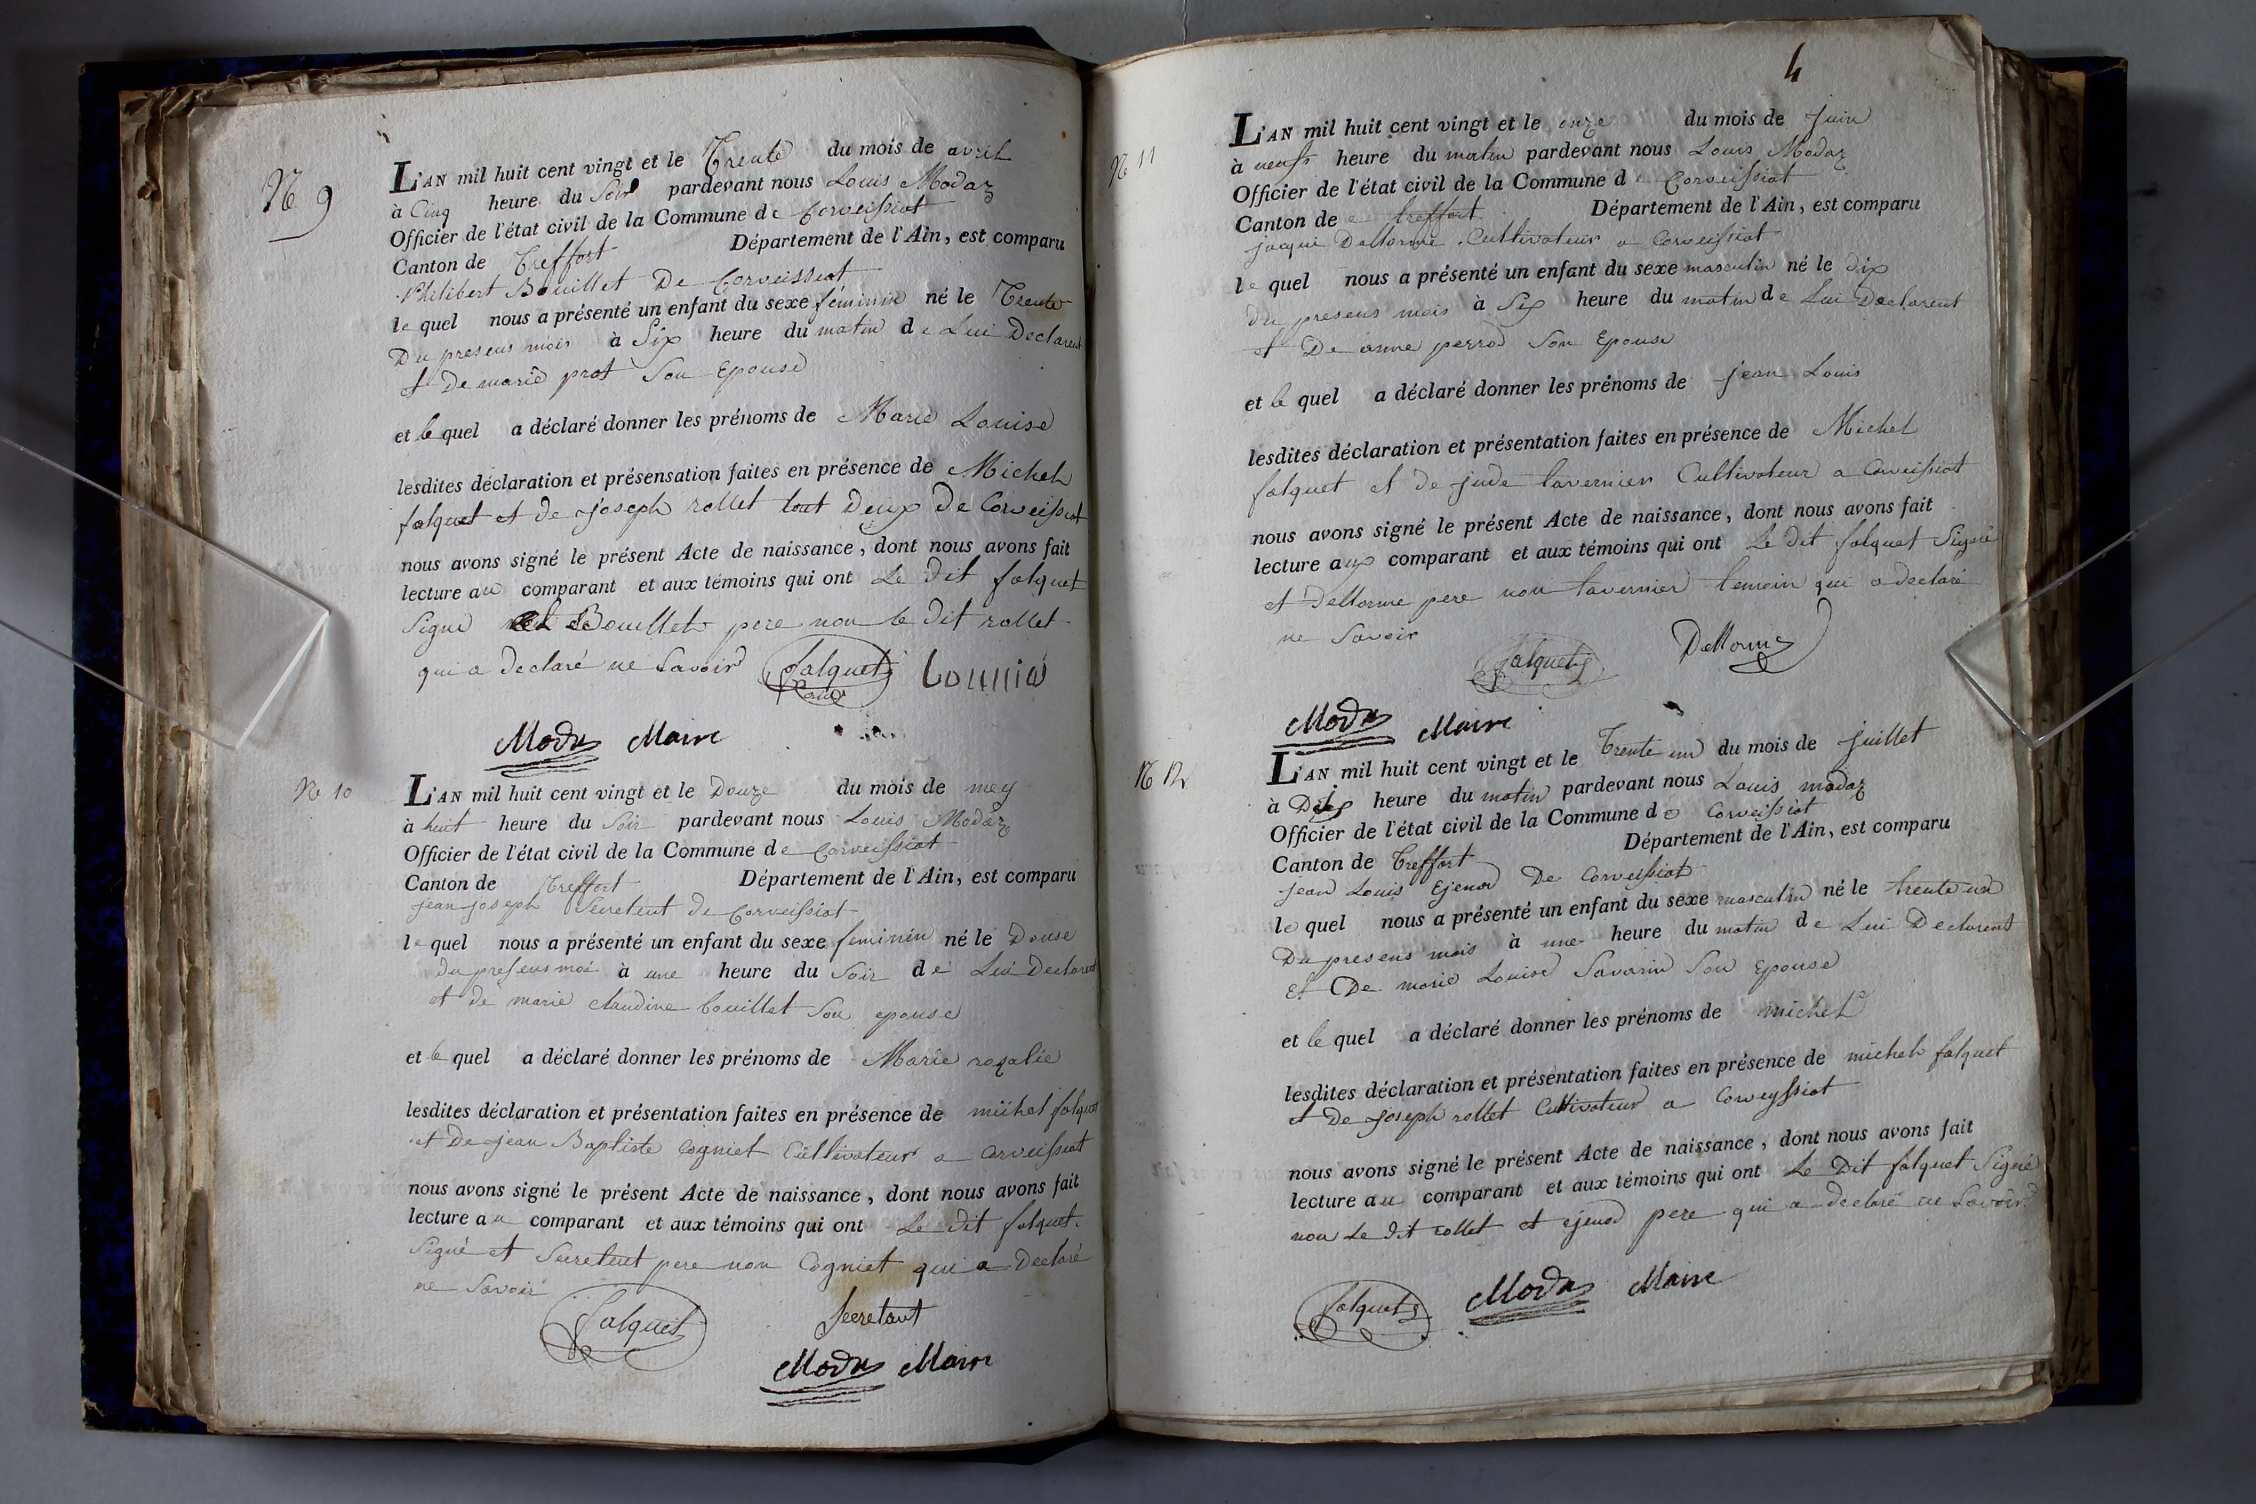 N° 9
L'AN mil huit cent vingt et le Trente du mois de avril
à Cinq heure du Soir pardevant nous Louis Modaz
Officier de l'état civil de la Commune de Corveissiat
Canton de Treffort Département de l'Ain, est comparu
Philibert Bouillet De Corveissiat
le quel nous a présenté un enfant du sexe féminin né le Trente
Du presens mois à Six heure du matin de Lui Declarent
et De marie prat Son Epouse
et le quel a déclaré donner les prénoms de Marie Louise
lesdites déclaration et présensation faites en présence de Michel
falquet et de joseph rollet tout Deux De Corveissiat
nous avons signé le présent Acte de naissance, dont nous avons fait
lecture au comparant et aux témoins qui ont Le dit falquet
Signé et Bouillet pere non le dit rollet
qui a declaré ne Savoir falquet
Modaz Maire
N° 10
L'AN mil huit cent vingt et le Douze du mois de mey
à huit heure du Soir pardevant nous Louis Modaz
Officier de l'état civil de la Commune de Corveissiat
Canton de Treffort Département de l'Ain, est comparu
jean joseph Secretent de Corveissiat
le quel nous a présenté un enfant du sexe feminin né le Douse
du presens moi à une heure du Soir de Lui Declarent
et de marie claudine bouillet Son epouse
et le quel a déclaré donner les prénoms de Marie rozalie
lesdites déclaration et présentation faites en présence de michel falquet
et De jean Baptiste cogniet Cultivateur a Corveissiat
nous avons signé le présent Acte de naissance, dont nous avons fait
lecture au comparant et aux témoins qui ont Le dit falquet
Signé et Secretent pere non Cogniet qui a Declaré
ne Savoir
falquet Secretant
Modaz Maire
4
N° 11
L'AN mil huit cent vingt et le onze du mois de juin
à neuf heure du matin pardevant nous Louis Modaz
Officier de l'état civil de la Commune d Corveissiat
Canton de treffort Département de l'Ain, est comparu
jacque Dellorme Cultivateur a Corveissiat
le quel nous a présenté un enfant du sexe masculin né le dix
du presens mois à Six heure du matin de Lui Declarent
et De anne perrod Son Epouse
et le quel a déclaré donner les prénoms de jean Louis
lesdites déclaration et présentation faites en présence de Michel
falquet et de jude tavernier Cultivateur a Corveissiat
nous avons signé le présent Acte de naissance, dont nous avons fait
lecture aux comparant et aux témoins qui ont Le dit falquet Signé
et Dellorme pere non tavernier temoin qui a declaré
ne Savoir
falquet Dellorme
Modaz Maire
N° 12
L'AN mil huit cent vingt et le Trente un du mois de juillet
à Dix heure du matin pardevant nous Louis modaz
Officier de l'état civil de la Commune de Corveissiat
Canton de Treffort Département de l'Ain, est comparu
jean Louis Ejenod De Corveissiat
le quel nous a présenté un enfant du sexe masculin né le trente un
Du presens mois à une heure du matin de Lui Declarent
et De marie Louise Savarin Son Epouse
et le quel a déclaré donner les prénoms de michel
lesdites déclaration et présentation faites en présence de michel falquet
et De joseph rollet Cultivateur a Corveyssiat
nous avons signé le présent Acte de naissance, dont nous avons fait
lecture au comparant et aux témoins qui ont Le Dit falquet Signé
non Le dit rollet et ejenod pere qui a declaré ne Savoir
falquet Modaz Maire